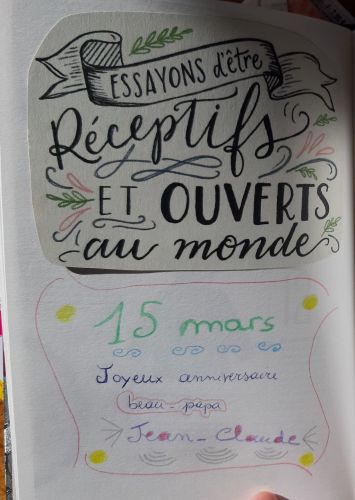 ESSAYONS d'être
Réceptifs
ET OUVERTS
au monde
15 mars
Joyeux anniversaire
beau-papa
Jean-Claude